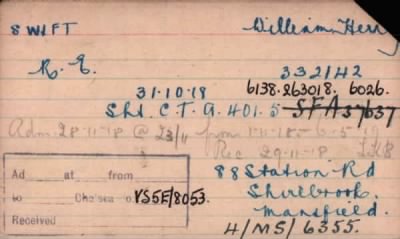 SWIFT William Henry
R. E. 332142
31·10·19 6138.263018. 6026.
Sht. C.T.G. 401.5 SFA37637
Adm. 28-11-18 @ 23/11 from 1-11-18 6-5-19
Rec 29-11-18
Ad at from
to Chelsea o. YS5E/8053.
Received
88 Station Rd
Shirebrook.
Mansfield.
4/MS/6355.